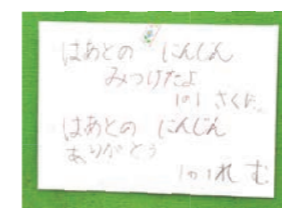 はあとの にんじん
みつけたよ
1の1 さくに
はあとの にんじん
ありがとう
1の1 れむ